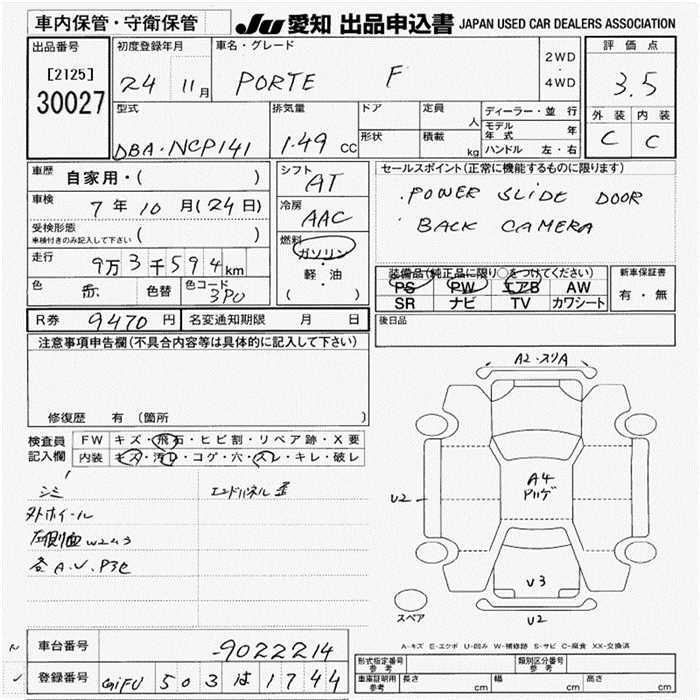 車内保管・守衛保管
JU 愛知 出品申込書 JAPAN USED CAR DEALERS ASSOCIATION
出品番号
[2125]
30027
初度登録年月
24 11月
車名・グレード
PORTE F
2WD
・
4WD
評価点
3.5
外装 内装
C C
型式
DBA-NCP141
排気量
1.49 CC
ドア
形状
定員
人
積載
kg
ディーラー・並行
モデル年式 年
ハンドル 左・右
車歴 自家用・( )
車検 7年10月(24日)
受検形態
車検付きのみ記入して下さい ( )
走行 9万3千594km
色 赤 色替 色コード 3PU
シフト AT
冷房 AAC
燃料
ガソリン
・
軽・油
( )
セールスポイント(正常に機能するものに限ります)
・POWER SLIDE DOOR
・BACK CAMERA
装備品(純正品に限り○をつけてください)
PS PW エアB AW
SR ナビ TV カワシート
新車保証書
有・無
後日品
R券 9470円 名変通知期限 月 日
注意事項申告欄(不具合内容等は具体的に記入して下さい)
修復歴 有 (箇所 )
検査員
記入欄
FW キズ・飛石・ヒビ割・リペア跡・X要
内装 キズ・汚レ・コゲ・穴・スレ・キレ・破レ
シミ
エンドパネル歪
外ホイール
左側面W2A3
各A.U.P3巴
A2・スリA
U2
A4
V3
U2
スペア
A-キズ E-エクボ U-凹み W-補修跡 S-サビ C-腐食 XX-交換済
車台番号 -9022214
登録番号 GIFU 503は1744
形式指定番号
参考
類別区分番号
参考
車庫証明用
参考
長さ cm 幅 cm 高さ cm